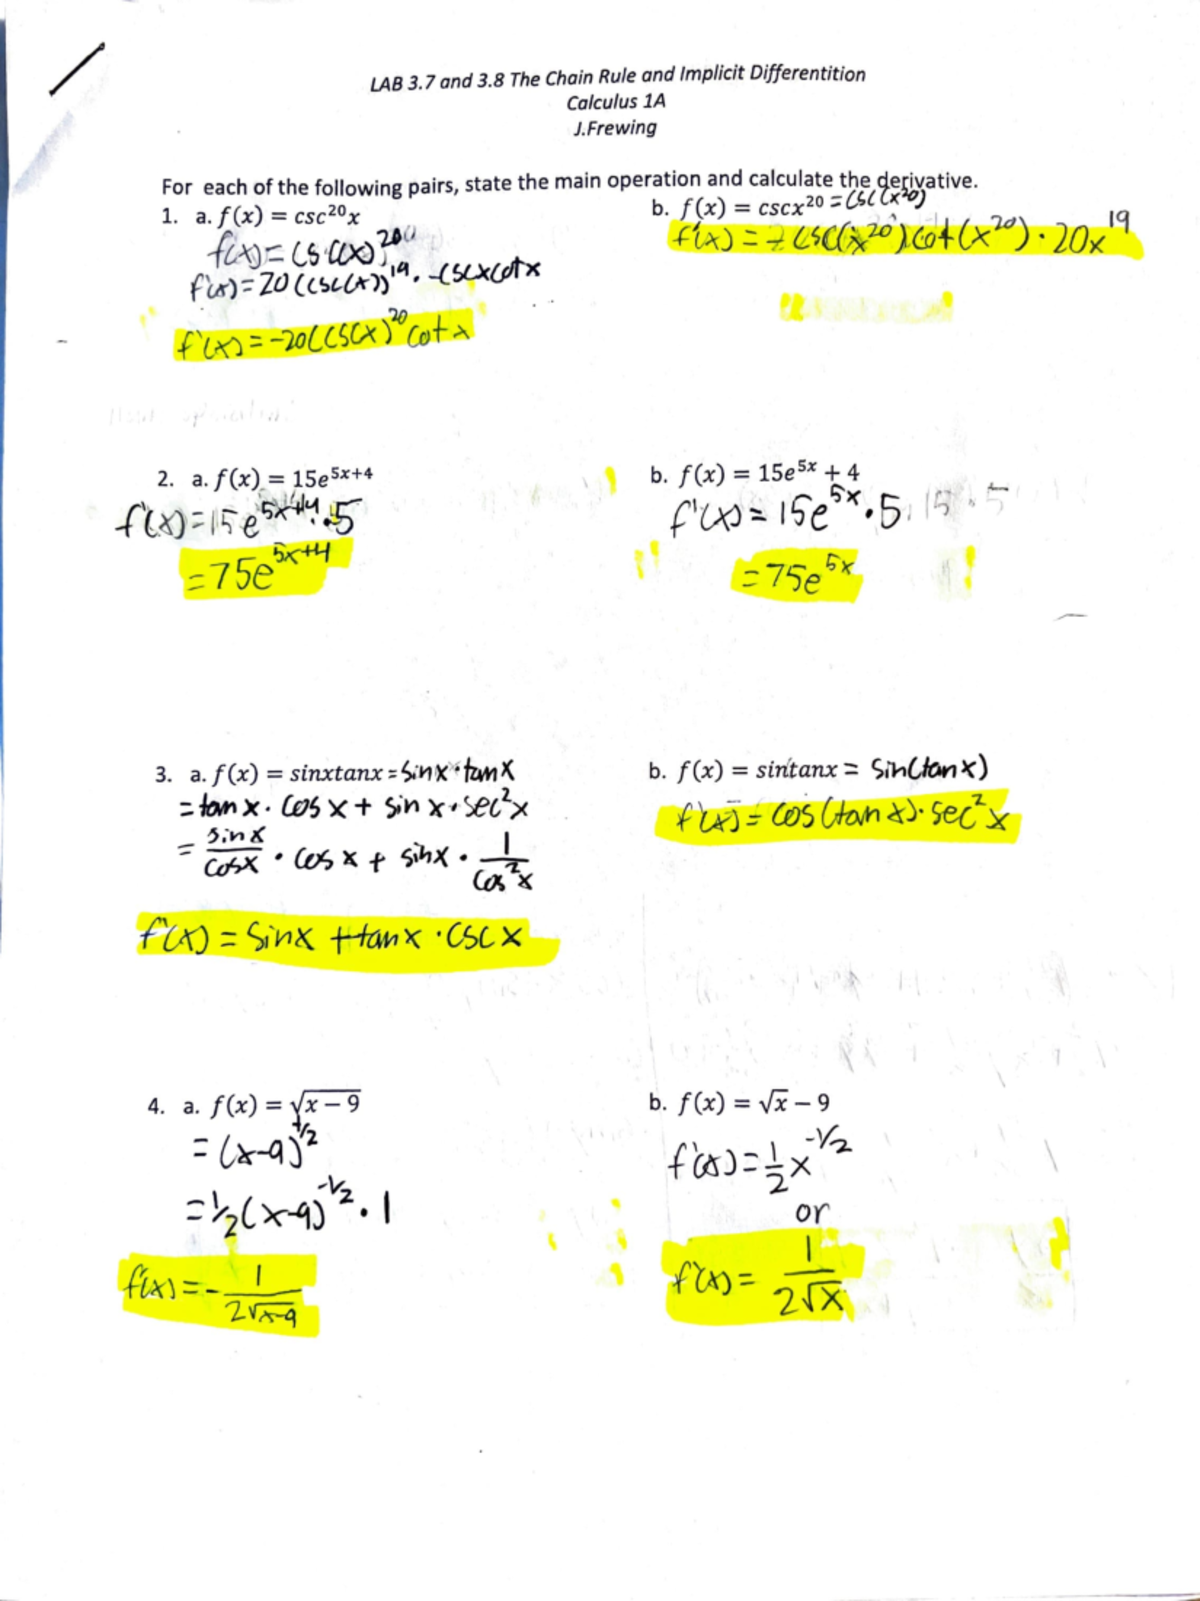 LAB 3.7 and 3.8 The Chain Rule and Implicit Differentition
Calculus 1A
J.Frewing
For each of the following pairs, state the main operation and calculate the derivative.
1. a. f(x) = csc²⁰x
f(x) = (csc(x))²⁰
f'(x) = 20(csc(x))¹⁹ · -cscxcotx
f'(x) = -20(csc x)²⁰ cot x
b. f(x) = cscx²⁰ = csc(x²⁰)
f'(x) = - csc(x²⁰)cot(x²⁰) · 20x¹⁹
2. a. f(x) = 15e⁵ˣ⁺⁴
f'(x) = 15e⁵ˣ⁺⁴ · 5
= 75e⁵ˣ⁺⁴
b. f(x) = 15e⁵ˣ + 4
f'(x) = 15e⁵ˣ · 5
= 75e⁵ˣ
3. a. f(x) = sinxtanx = sinx · tanx
= tan x · cos x + sin x · sec²x
= sinx/cosx · cos x + sinx · 1/cos²x
f'(x) = sinx + tanx · csc x
b. f(x) = sintanx = sin(tanx)
f'(x) = cos(tan x) · sec²x
4. a. f(x) = √(x − 9)
= (x-9)^½
= ½(x-9)^-½ · 1
f'(x) = - 1/(2√(x-9))
b. f(x) = √x − 9
f'(x) = ½x^-½
or
f'(x) = 1/(2√x)